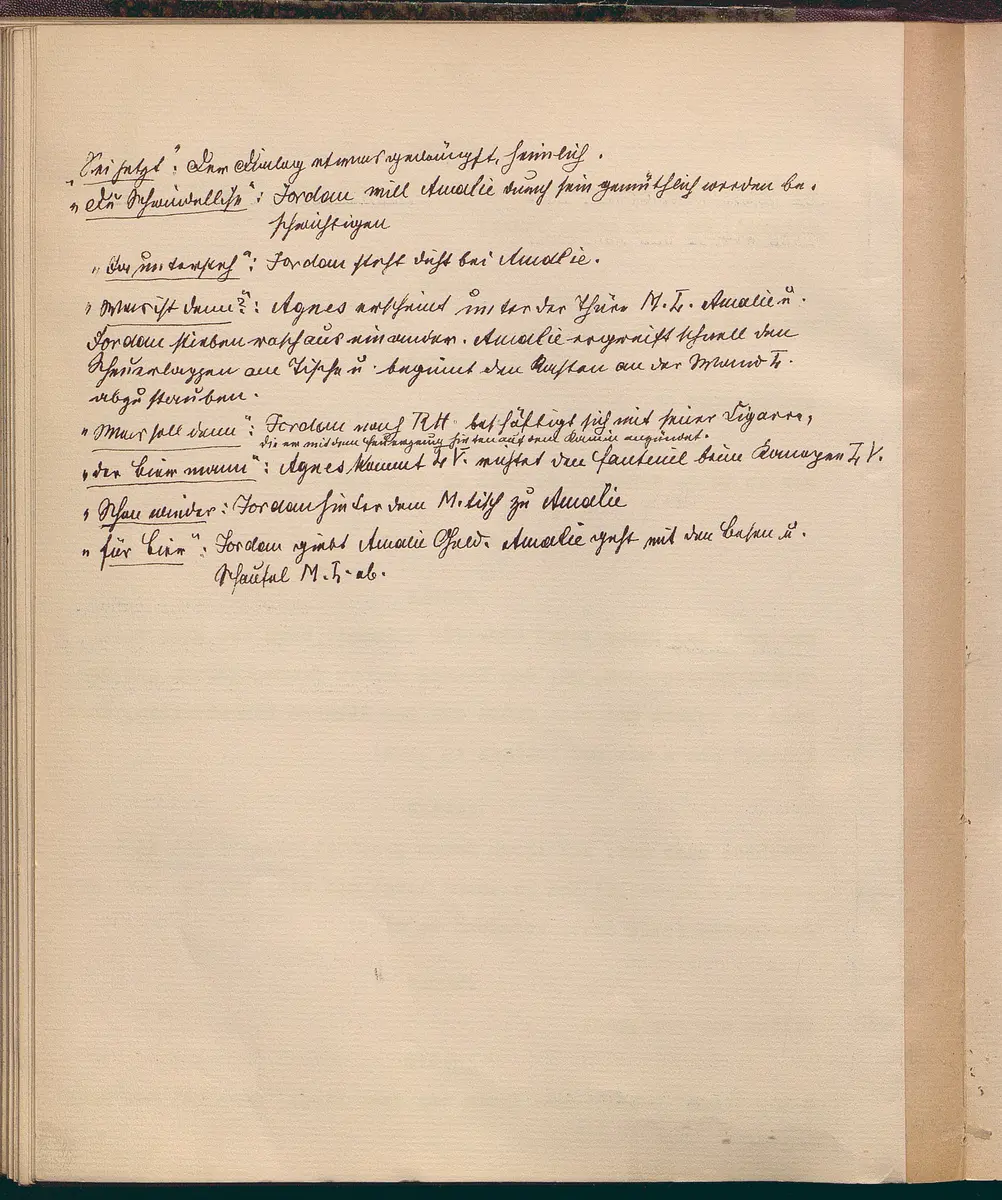 "Bei jetzt": Der Dialog etwas gedämpft, heimlich.
"Du Schwindellise": Jordan will Amalie durch sein gemüthlich werden be-
schwichtigen
"Da untersteh": Jordan steht dicht bei Amalie.
"Was ist denn?": Agnes erscheint unter der Thüre M. L. Amalie u.
Jordan stieben rasch auseinander. Amalie ergreift schnell den
Scheuerlappen am Tische u. beginnt den Kasten an der Wand L.
abzustauben.
"Was soll denn": Jordan nach RH. beschäftigt sich mit seiner Cigarre,
die er mit dem Feuerzeug hinten auf dem Kamin anzündet.
"der Biermann": Agnes kommt LV. richtet den Fauteuil beim Kanapee LV.
"Schon wieder: Jordan hinter dem M. tisch zu Amalie
"für Bier": Jordan giebt Amalie Geld. Amalie geht mit den Besen u.
Schaufel M. L. ab.